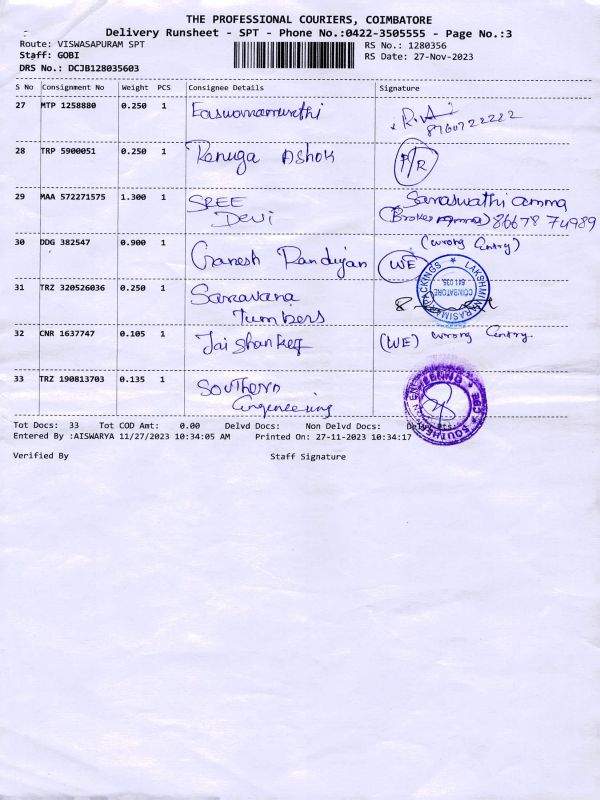 THE PROFESSIONAL COURIERS, COIMBATORE
Delivery Runsheet - SPT - Phone No.:0422-3505555 - Page No.:3
Route: VISWASAPURAM SPT
RS No.: 1280356
Staff: GOBI
RS Date: 27-Nov-2023
DRS No.: DCJB128035603
S No Consignment No Weight PCS Consignee Details Signature
27 MTP 1258880 0.250 1 Easwaramurthi
8760722222
28 TRP 5900051 0.250 1 Renuga Ashok P/R
29 MAA 572271575 1.300 1 SREE Devi Saraswathi amma
(Broker amma) 86678 74989
30 DDG 382547 0.900 1 Ganesh Pandiyan (WE) (wrong Entry)
31 TRZ 320526036 0.250 1 Saravana Timbers
LAKSHMI NARASIMMA PACKINGS
COIMBATORE
641 035.
32 CNR 1637747 0.105 1 Jai Shankar (WE) wrong Entry
33 TRZ 190813703 0.135 1 Southern Engineering
SOUTHERN ENGINEERING CBE
Tot Docs: 33 Tot COD Amt: 0.00 Delvd Docs: Non Delvd Docs: Delvr Pts:
Entered By :AISWARYA 11/27/2023 10:34:05 AM Printed On: 27-11-2023 10:34:17
Verified By Staff Signature